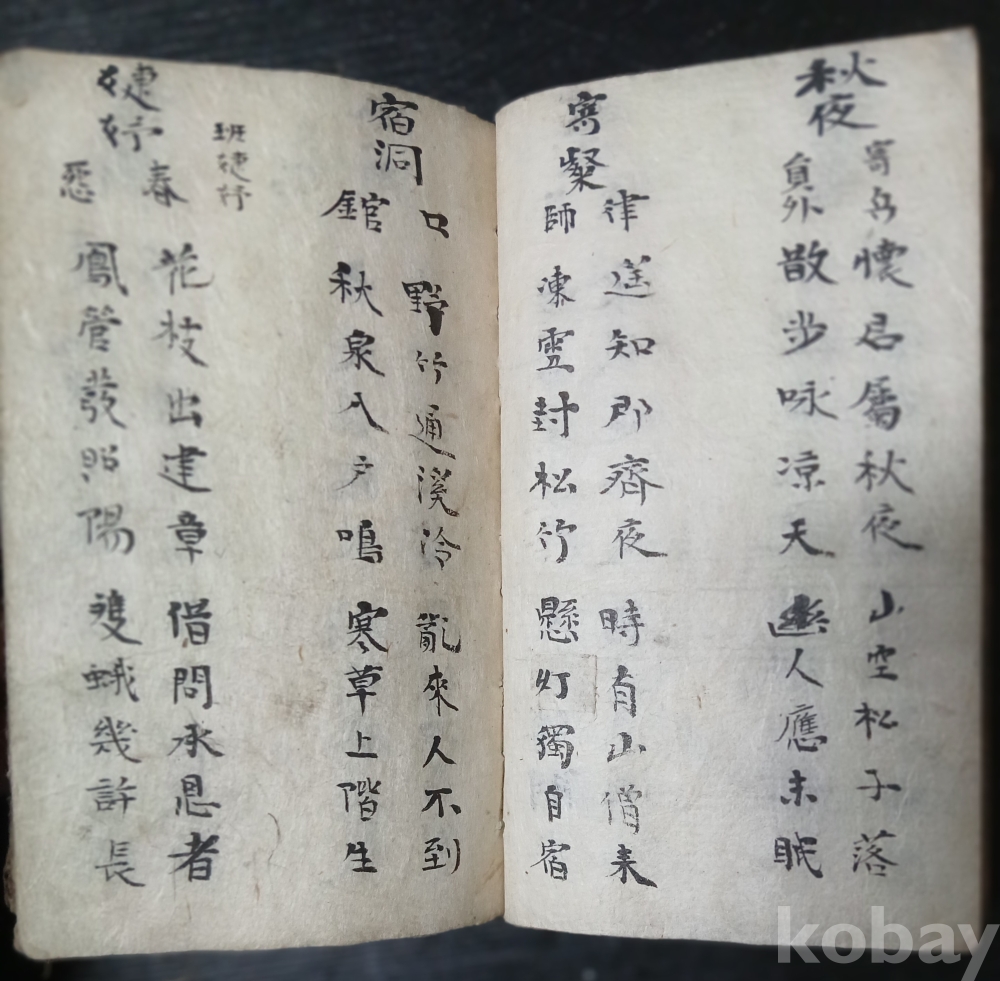 秋夜
寄丘
員外
懷君屬秋夜 山空松子落
散步咏凉天 幽人應未眠
寄璨
律
師
遥知郡齊夜 時有山僧來
凍雲封松竹 懸灯獨自宿
宿洞
口
舘
野竹通溪冷 亂來人不到
秋泉入戶鳴 寒草上階生
班婕妤
婕妤
春
怨
花枝出建章 借問承恩者
鳳管發昭陽 雙蛾幾許長
kobay